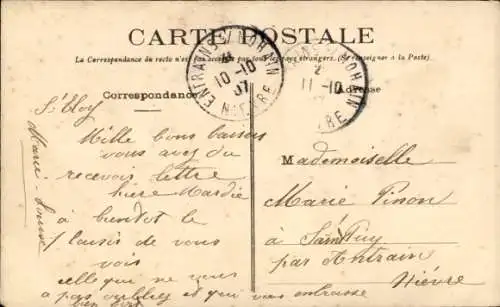 CARTE POSTALE
La Correspondance du recto n'est pas acceptée par tous les pays étrangers. (Se renseigner à la Poste).
Correspondance
Adresse
ENTRAINS S/NOHAIN
10-10
07
NIEVRE
S/NOHAIN
2
11-10
RE
St Eloy
Mille bons baisers
vous avez du
recevoir lettre
hiere Mardie
à bientot le
plaisir de vous
voir
celle que ne vous
a pas oublies et qui vous embrasse
bien fort
Marie-Louise
Mademoiselle
Marie Pinon
à Saint Puy
par Antrain
Nièvre